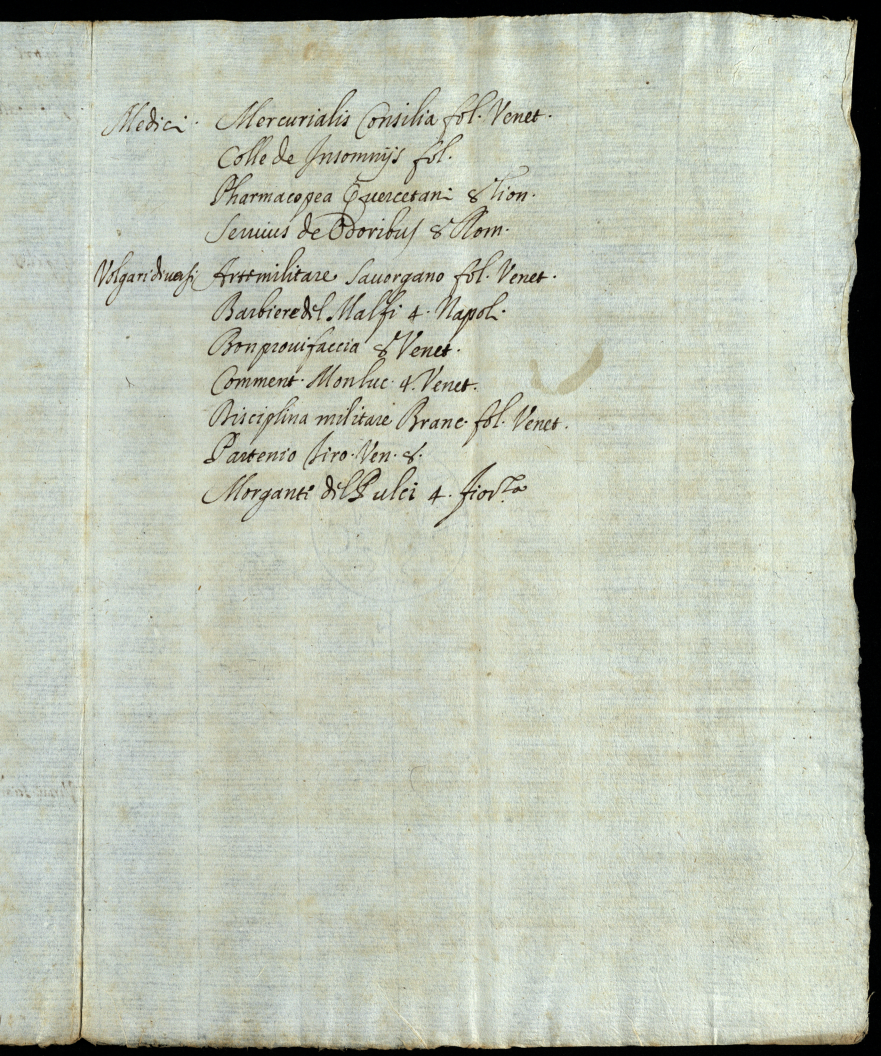 Medici. Mercurialis Consilia fol. Venet.
Colle de Insomnijs fol.
Pharmacopea Quercetani 8 Lion.
Seruius de Odoribus 8 Rom.
Volgari diuersi Arte militare Sauorgano fol. Venet.
Barbiere del Malfi 4. Napoli.
Bonprouifaccia 8 Venet.
Comment. Monluc. 4. Venet.
Disciplina militare Branc. fol. Venet.
Partenio Ven. 8.
Morganti del Pulci 4.